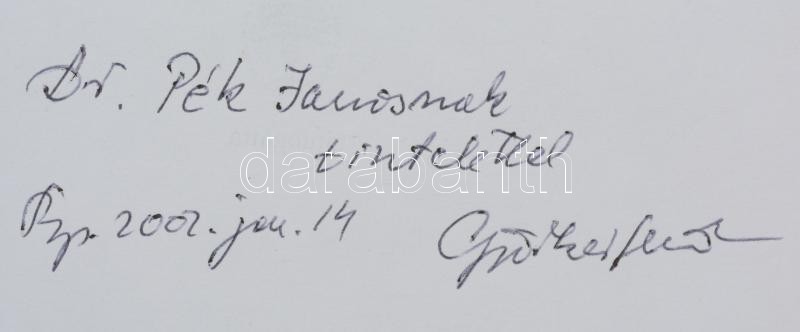 Dr. Pék Jánosnak
tisztelettel
darabanth
Bp. 2002. jan. 14